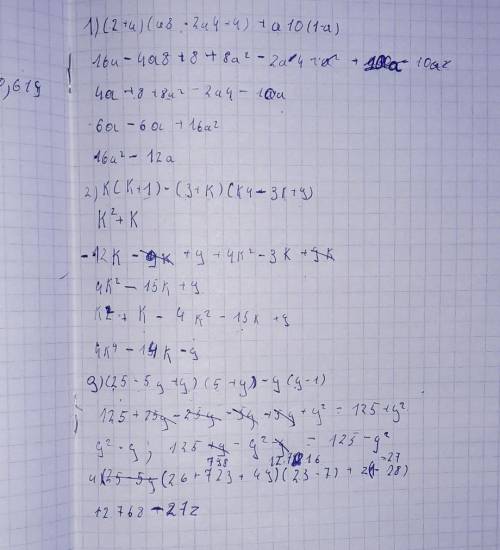 1) (2+a)(a8 - 2a4 - 4) + a10(1-a)
0,619
16a - 4a8 + 8 + 8a² - 2a4 + - 10a²
4a + 8 + 8a² - 2a4 - 10a
6a - 6a + 16a²
16a² - 12a
2) K(K+1) - (3+K)(K4 - 3K + 9)
K² + K
-12K - 9K + 9 + 4K² - 3K + 9K
4K² - 15K + 9
K2 + K - 4K² - 15K + 9
4K4 - 14K - 9
3) (25 - 5y + y)(5+y) - y(y-1)
125 + 25y - 25y - 5y + 5y + y² = 125 + y²
y² - y; 125 + y - y² - y = 125 - y²
738 16 =27
4) 25 - 5y (26 + 723 + 49)(23 - 7) + 2(1 - 28)
+2768 - 27z